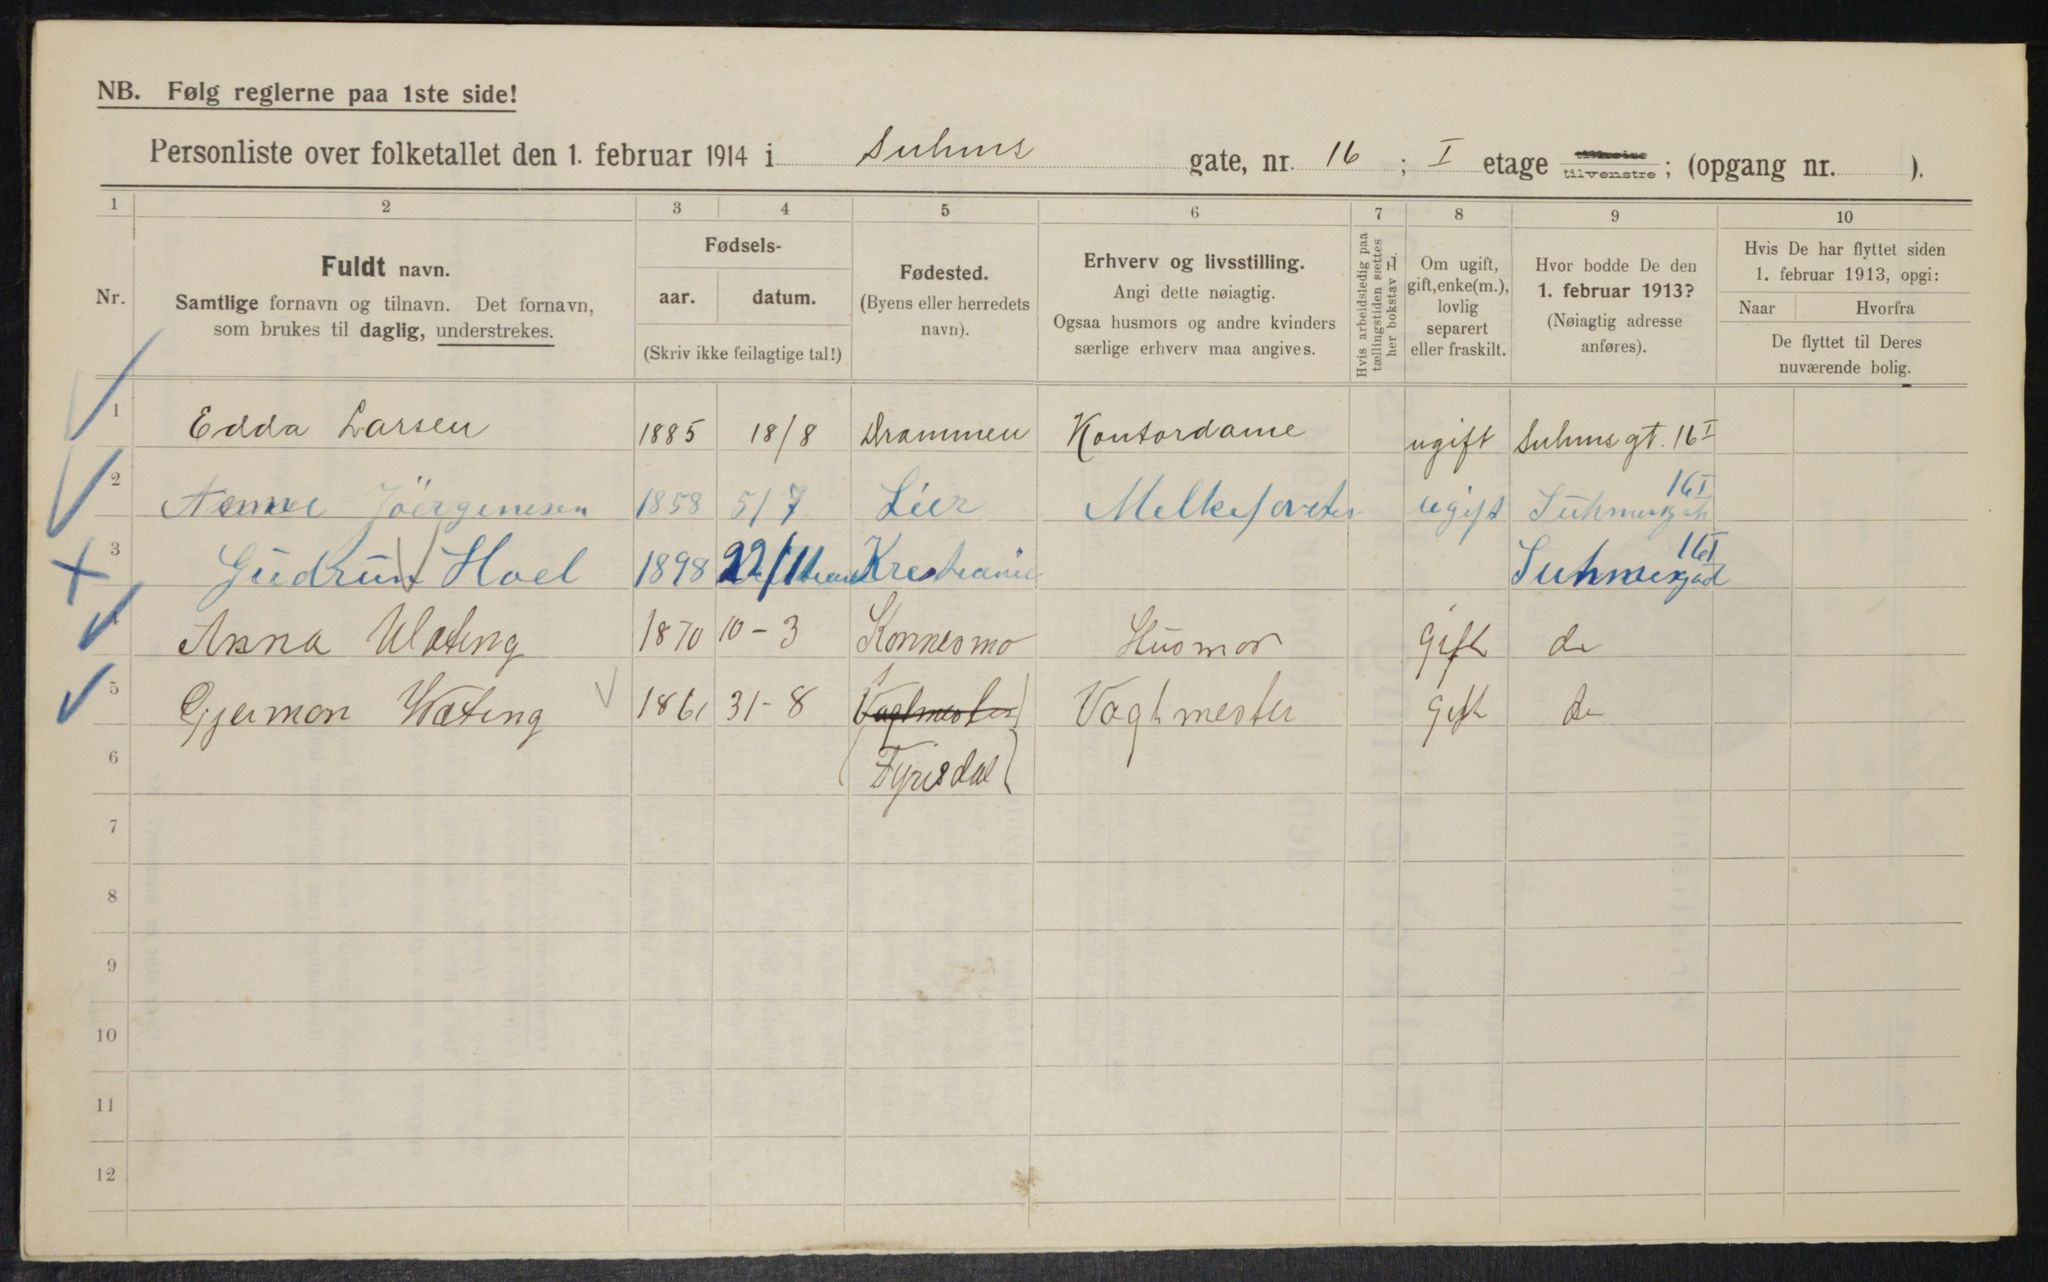 NB. Følg reglerne paa 1ste side!
Personliste over folketallet den 1. februar 1914 i Suhms gate, nr. 16 ; I etage tilvenstre ; (opgang nr. ).
1 2 3 4 5 6 7 8 9 10
Nr.
Fuldt navn.
Samtlige fornavn og tilnavn. Det fornavn,
som brukes til daglig, understrekes.
Fødsels-
aar. datum.
(Skriv ikke feilagtige tal!)
Fødested.
(Byens eller herredets
navn).
Erhverv og livsstilling.
Angi dette nøiagtig.
Ogsaa husmors og andre kvinders
særlige erhverv maa angives.
Hvis arbeidsledig paa
tællingstiden sættes
her bokstav L.
Om ugift,
gift, enke(m.),
lovlig
separert
eller fraskilt.
Hvor bodde De den
1. februar 1913?
(Nøiagtig adresse
anføres).
Hvis De har flyttet siden
1. februar 1913, opgi:
Naar Hvorfra
De flyttet til Deres
nuværende bolig.
1 Edda Larsen 1885 18/8 Drammen Kontordame ugift Suhms gt. 16 I
2 Jöergensen 1858 5/7 Lier ugift 16 I
3 Gudrun Hoel 1898 22/11 16 I
4 Anna 1870 10-3 Konnesmo Husmor Gift do
5 Gjermon Wæting 1861 31-8 Vagtmester Vagtmester Gift do
6 Fyrisdal
7
8
9
10
11
12